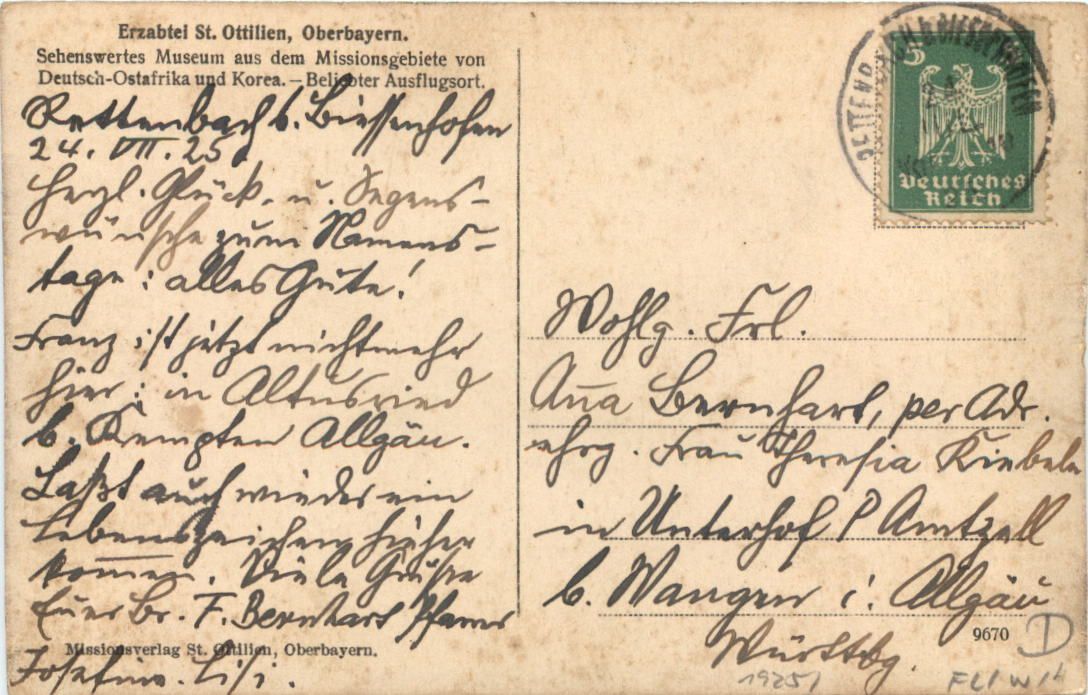 Erzabtei St. Ottilien, Oberbayern.
Sehenswertes Museum aus dem Missionsgebiete von
Deutsch-Ostafrika und Korea. – Beliebter Ausflugsort.
Rettenbach b. Biessenhofen
24. VII. 25
Herzl. Glück- u. Segens-
wünsche zum Namens-
tage: alles Gute!
Franz ist jetzt nicht mehr
hier: in Altusried
b. Kempten Allgäu.
Laßt auch wieder ein
Lebenszeichen hieher
kommen. Viele Grüße
Euer Br. F. Bernhart Pfarrer
Josefine. Lisi.
Missionsverlag St. Ottilien, Oberbayern.
RETTENBACH b. BIESSENHOFEN
5
Deutsches
Reich
Wohlg. Frl.
Anna Bernhart, per Adr.
Frau Theresia Kiebele
in Unterhof P Amtzell
b. Wangen i. Allgäu
Württbg.
9670
D
1925